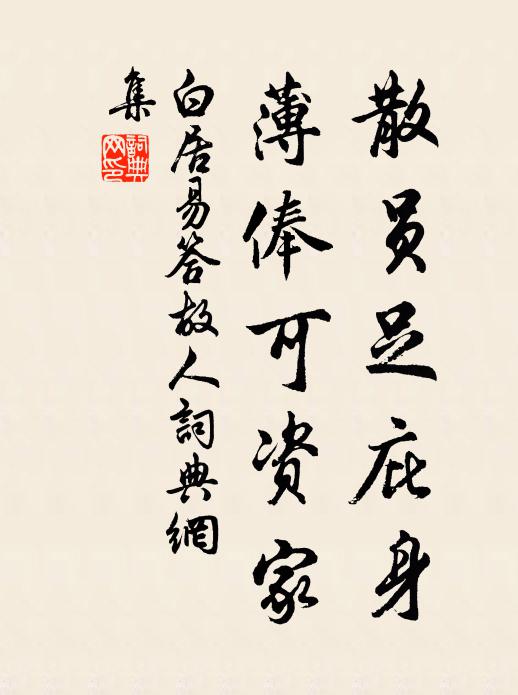 散员足庇身
薄俸可资家
白居易答故人詞典網
集
詞典
网印